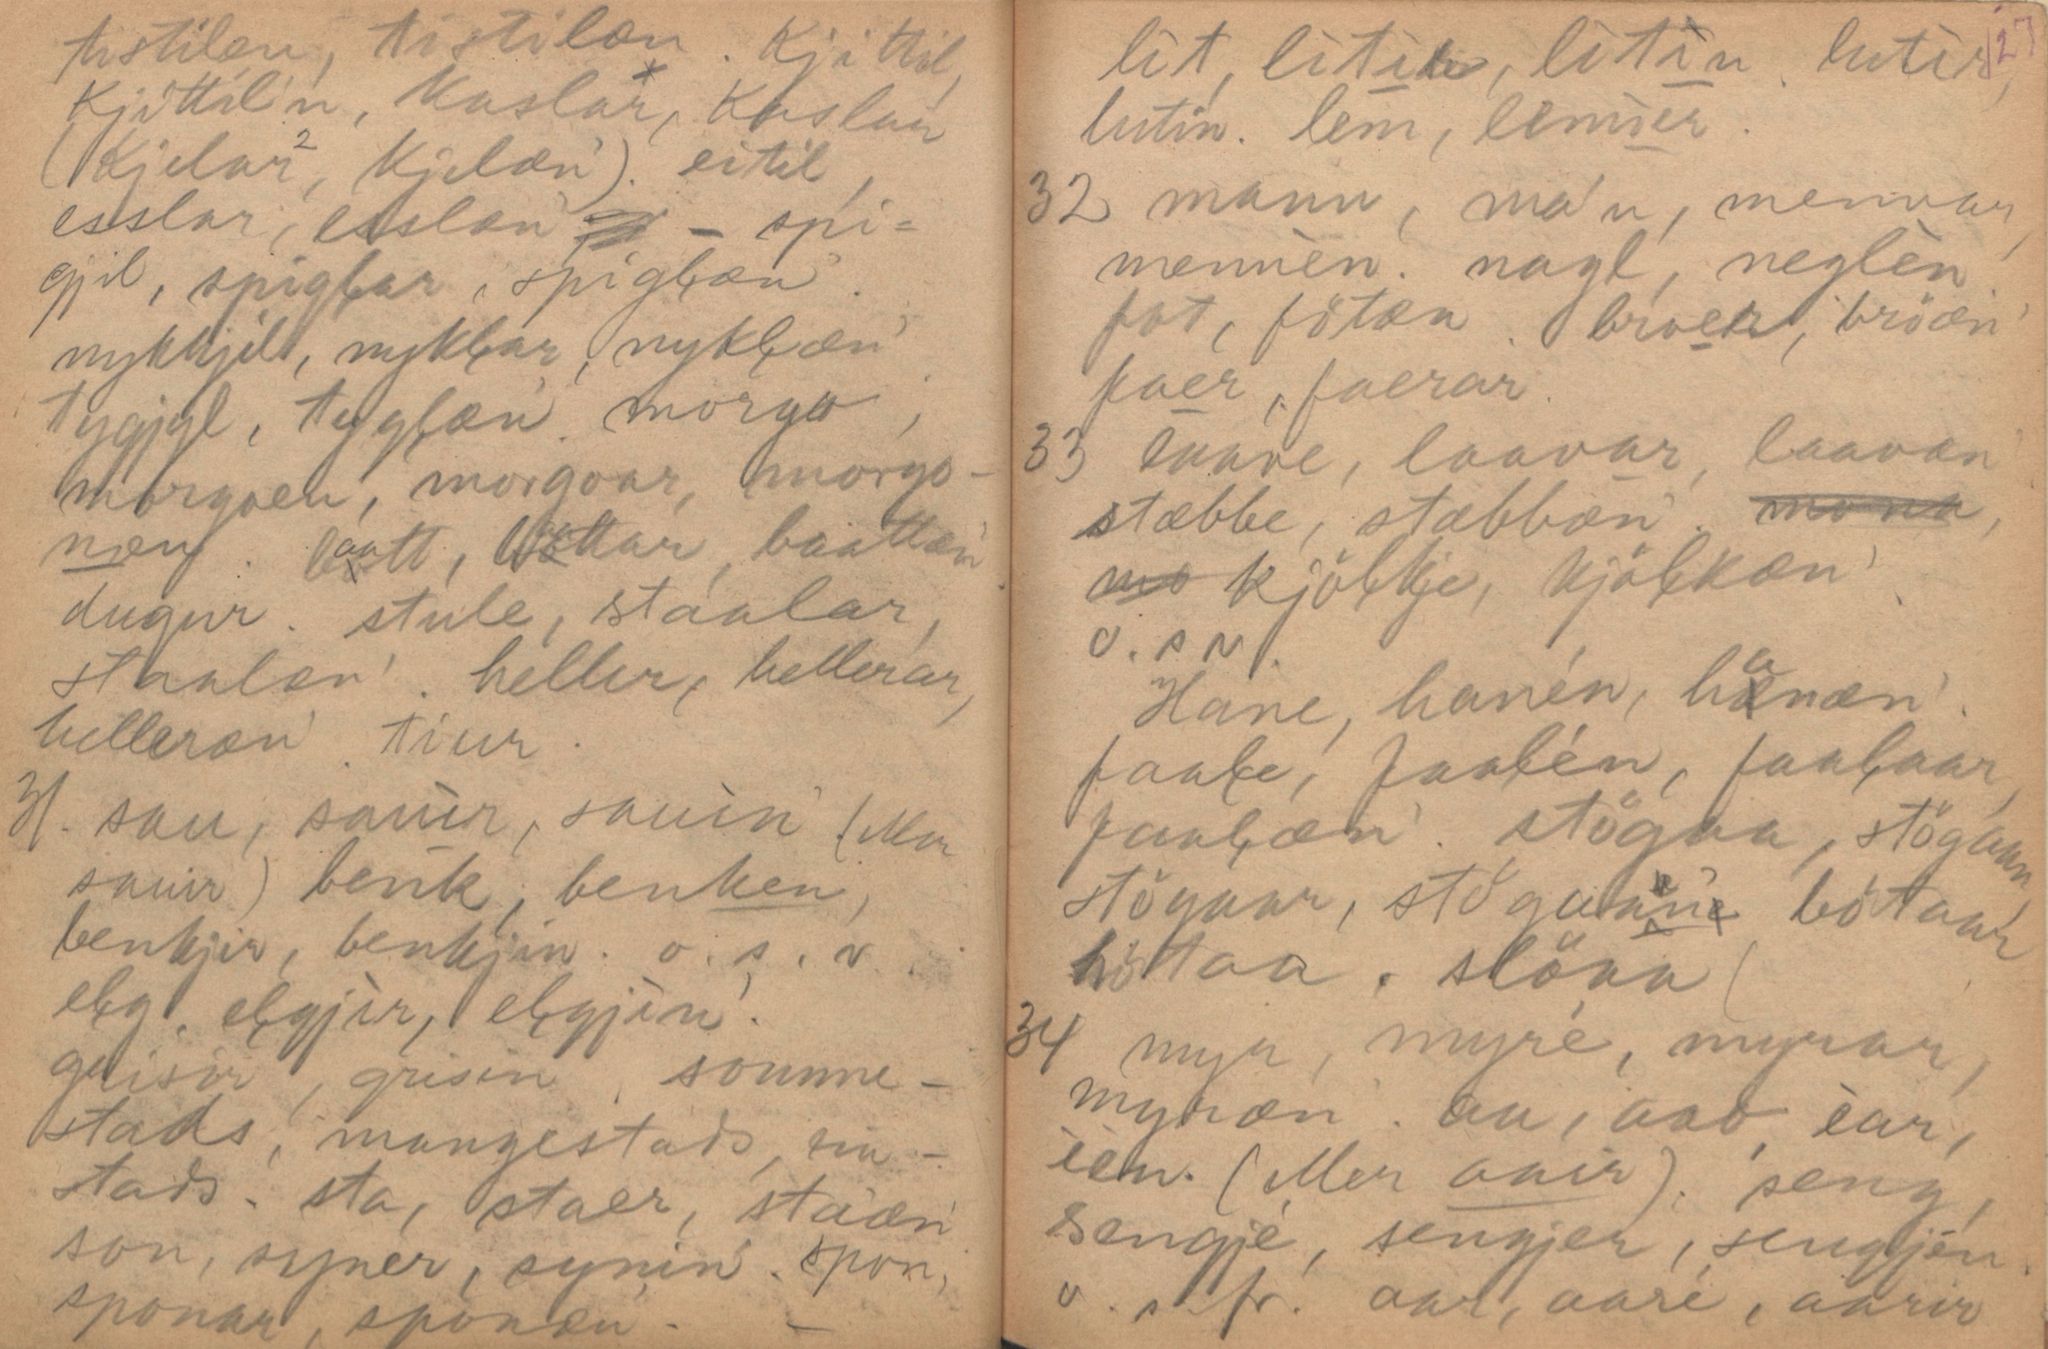 tistilæn, tistilæn. Kjittil,
Kjittil'n, Kaslar, Kaslan
(Kjelar², Kjelæn'). eitil,
esslar, esslæn' – spi=
gjil, spigłar, spigłæn'.
nykkjil, nykłar, nykłæn'
tygjyl, tygłæn'. morgo,
morgoen, morgoar, morgo-
næn. baatt, böttar, baattæn'
dugur. stule, stáalar,
staalæn'. heller, hellerar,
helleræn'. tiur.
31. sau, sauìr, sauìn' (Mer
sauir) benk, benken,
benkjir, benkjin. o. s. v.
ełg, ełgjìr, ełgjìn'.
grisir, grisin, soumme-
stads, mangestads, ein-
stads. sta, staer, stáæn'
son, syner, synin'. spon,
sponar, sponæn'. –
127
lit, litìr, litìn. lutir,
lutin. lem, lemìer.
32 mann, ma'n, mennar,
mennèn. nagl, neglèn
fot, fötæn. broer, bröæn'
faer, faerar.
33 laave, laavar, laavæn'
stæbbe, stæbbæn'.
kjöłkje, kjöłkæn'
o. s v.
Hane, hanén, hanæn'.
faałe, faałén, faałaar,
faałæn'. stögaa, stögaan,
stögaar, stögaan' bótaar
bótaa. slöaa (
34 myr, myré, myrar,
myræn'. aa, aao, èar,
èèn. (Mer aair). seng,
sengjé, sengjer, sengjén.
o. s. fr. aar, aaré, aarir